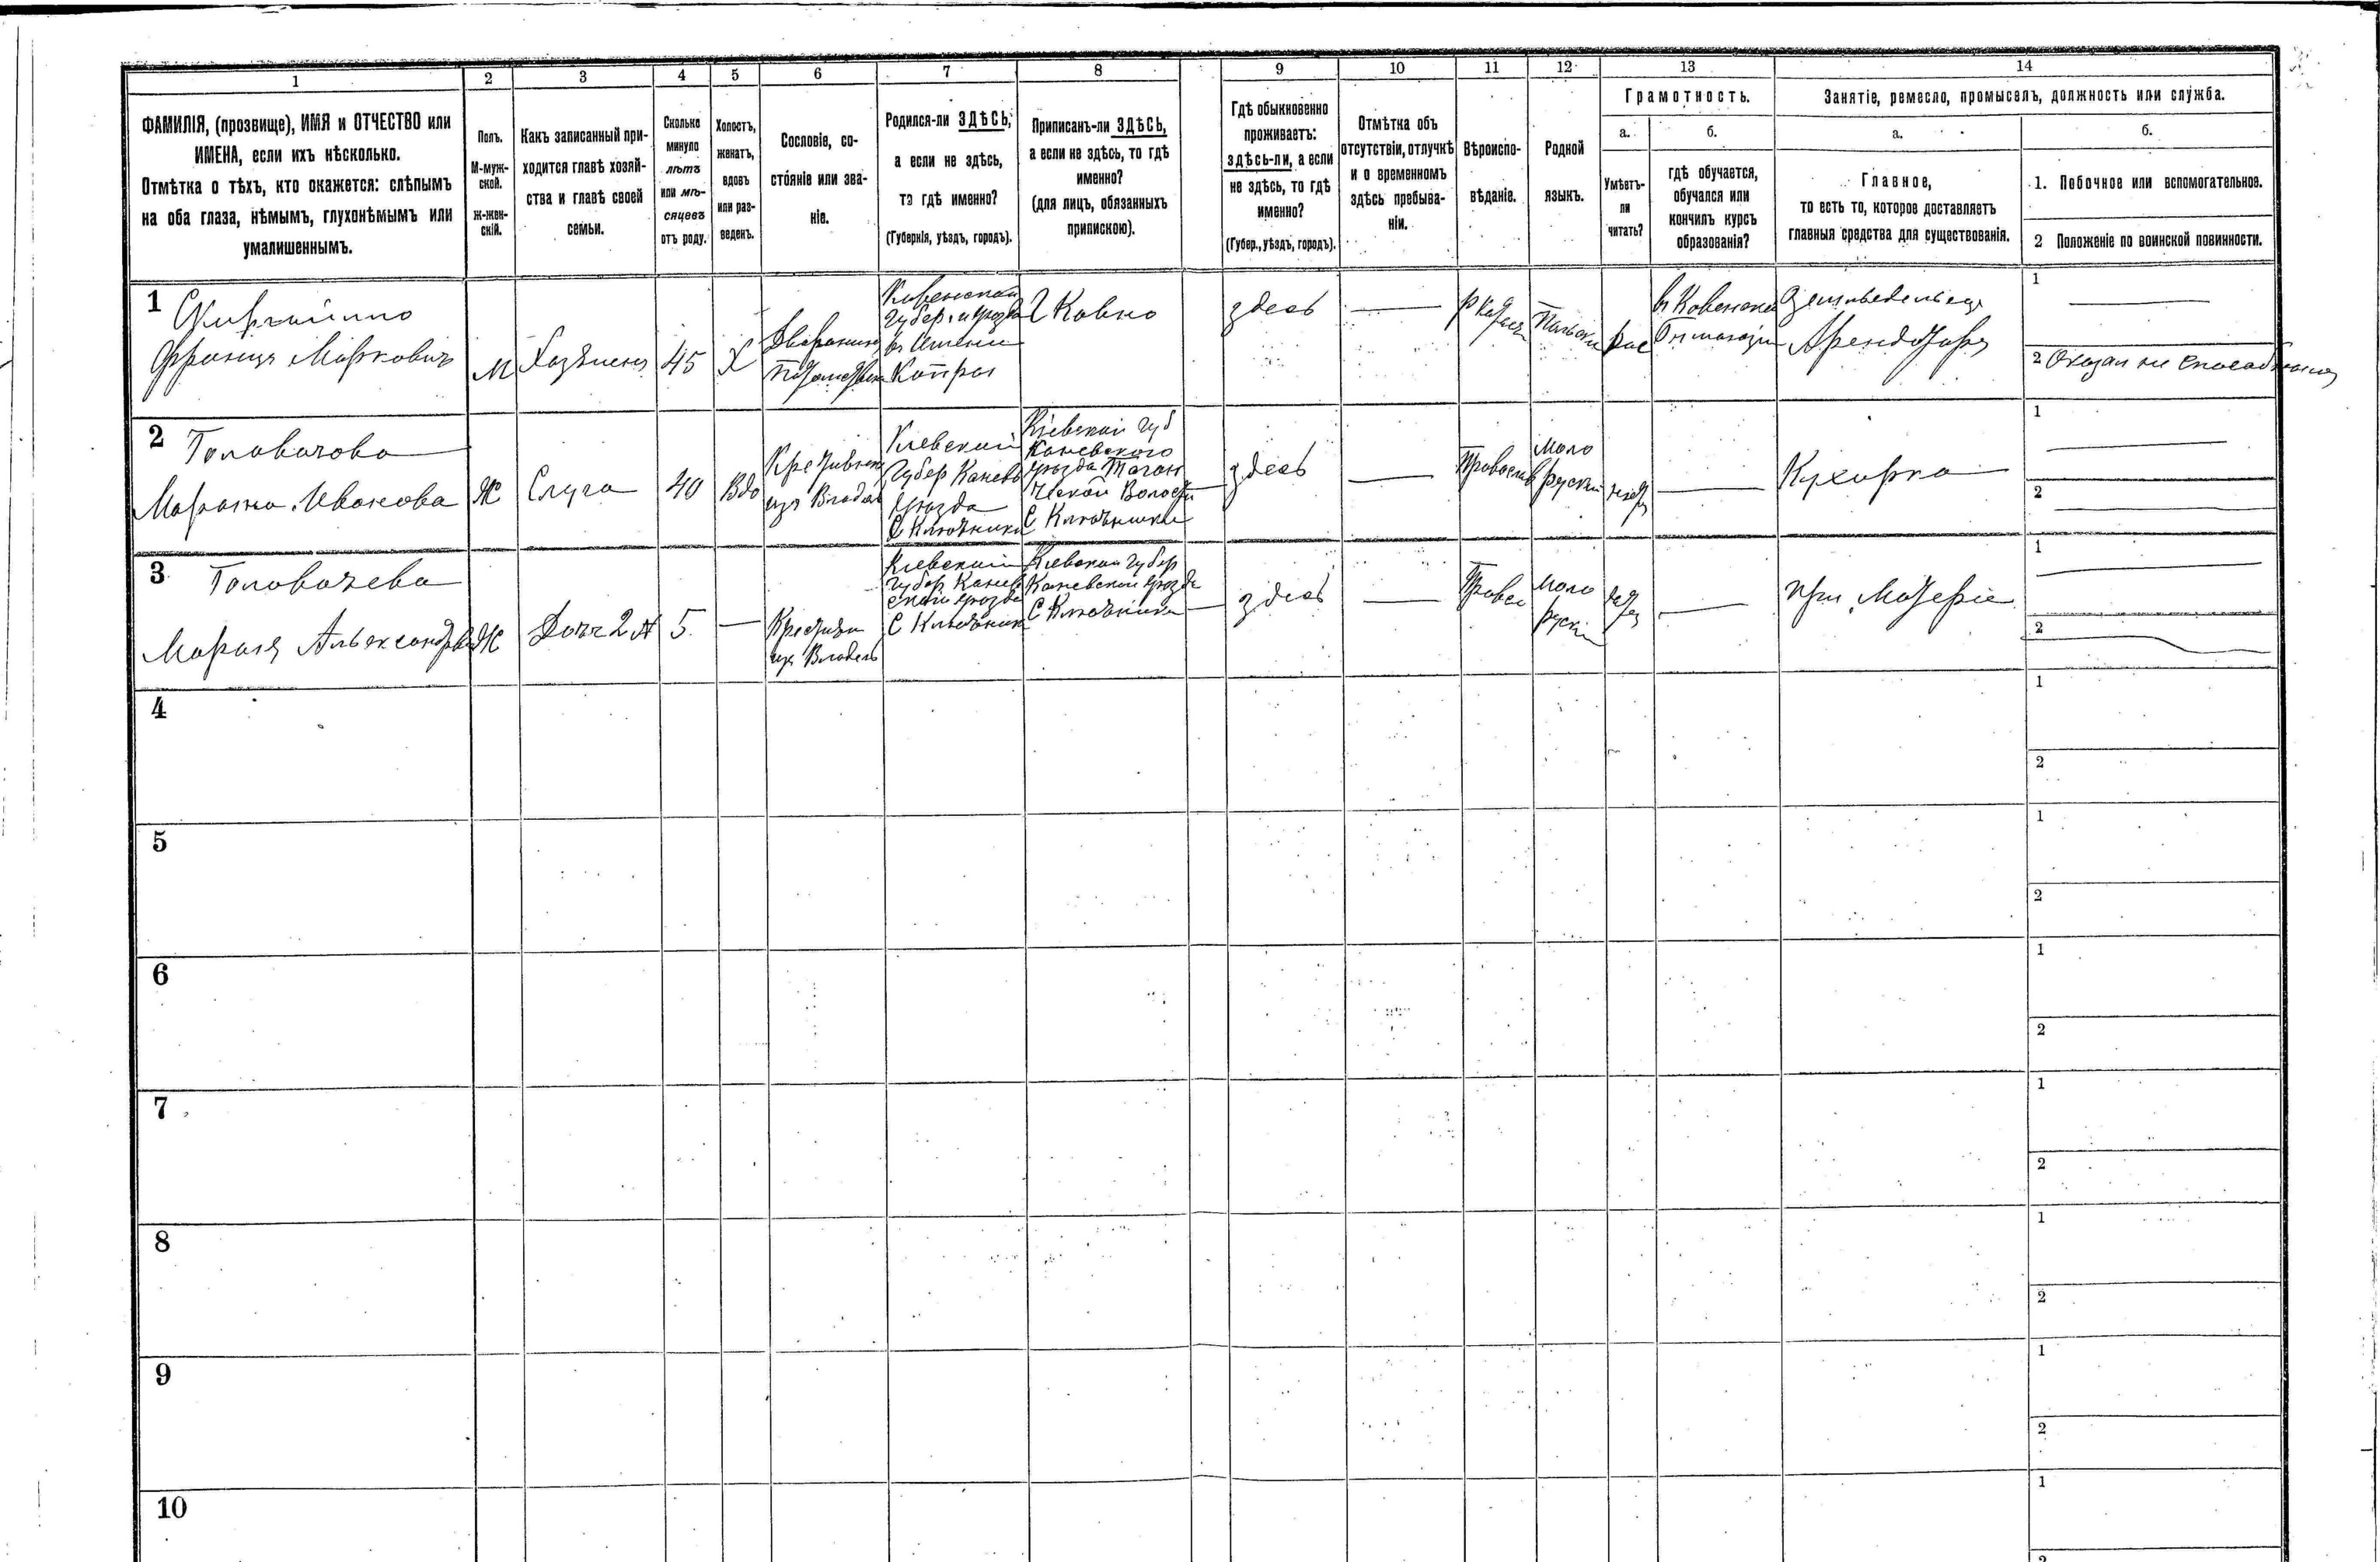 1 2 3 4 5 6 7 8 9 10 11 12 13 14
ФАМИЛІЯ, (прозвище), ИМЯ и ОТЧЕСТВО или
ИМЕНА, если ихъ нѣсколько.
Отмѣтка о тѣхъ, кто окажется: слѣпымъ
на оба глаза, нѣмымъ, глухонѣмымъ или
умалишеннымъ.
Полъ.
М-муж-
ской.
Ж-жен-
скій.
Какъ записанный при-
ходится главѣ хозяй-
ства и главѣ своей
семьи.
Сколько
минуло
лѣтъ
или мѣ-
сяцевъ
отъ роду.
Холостъ,
женатъ,
вдовъ
или раз-
веденъ.
Сословіе, со-
стояніе или зва-
ніе.
Родился-ли ЗДѢСЬ,
а если не здѣсь,
то гдѣ именно?
(Губернія, уѣздъ, городъ).
Приписанъ-ли ЗДѢСЬ,
а если не здѣсь, то гдѣ
именно?
(для лицъ, обязанныхъ
припискою).
Гдѣ обыкновенно
проживаетъ:
здѣсь-ли, а если
не здѣсь, то гдѣ
именно?
(Губер., уѣздъ, городъ).
Отмѣтка объ
отсутствіи, отлучкѣ
и о временномъ
здѣсь пребыва-
ніи.
Вѣроиспо-
вѣданіе.
Родной
языкъ.
Грамотность.
а.
Умѣетъ-
ли
читать?
б.
гдѣ обучается,
обучался или
кончилъ курсъ
образованія?
Занятіе, ремесло, промыселъ, должность или служба.
а.
Главное,
то есть то, которое доставляетъ
главныя средства для существованія.
б.
1. Побочное или вспомогательное.
2 Положеніе по воинской повинности.
1
Францъ Марковичъ
М
45
Х
в Имении
Г Ковно
здесь
Арендаторъ
1
2
2 Головачова
Иванова
Ж
Слуга
40
Вдо
Киевской
Губер Канев
уѣзда
С Ключники
Кіевской губ
Каневского
уѣзда Таган
ческой Волости
С Ключники
здесь
Православ
Мало
руский
Кухарка
1
2
3 Головачева
Александрова
Ж
Дочь 2 №
5
Киевской
губер Канев
ской уѣзда
С Ключники
Киевской губер
Каневской уѣзда
С Ключники
здесь
Правос
Мало
руский
при Матеріе
1
2
4
1
2
5
1
2
6
1
2
7
1
2
8
1
2
9
1
2
10
1
2